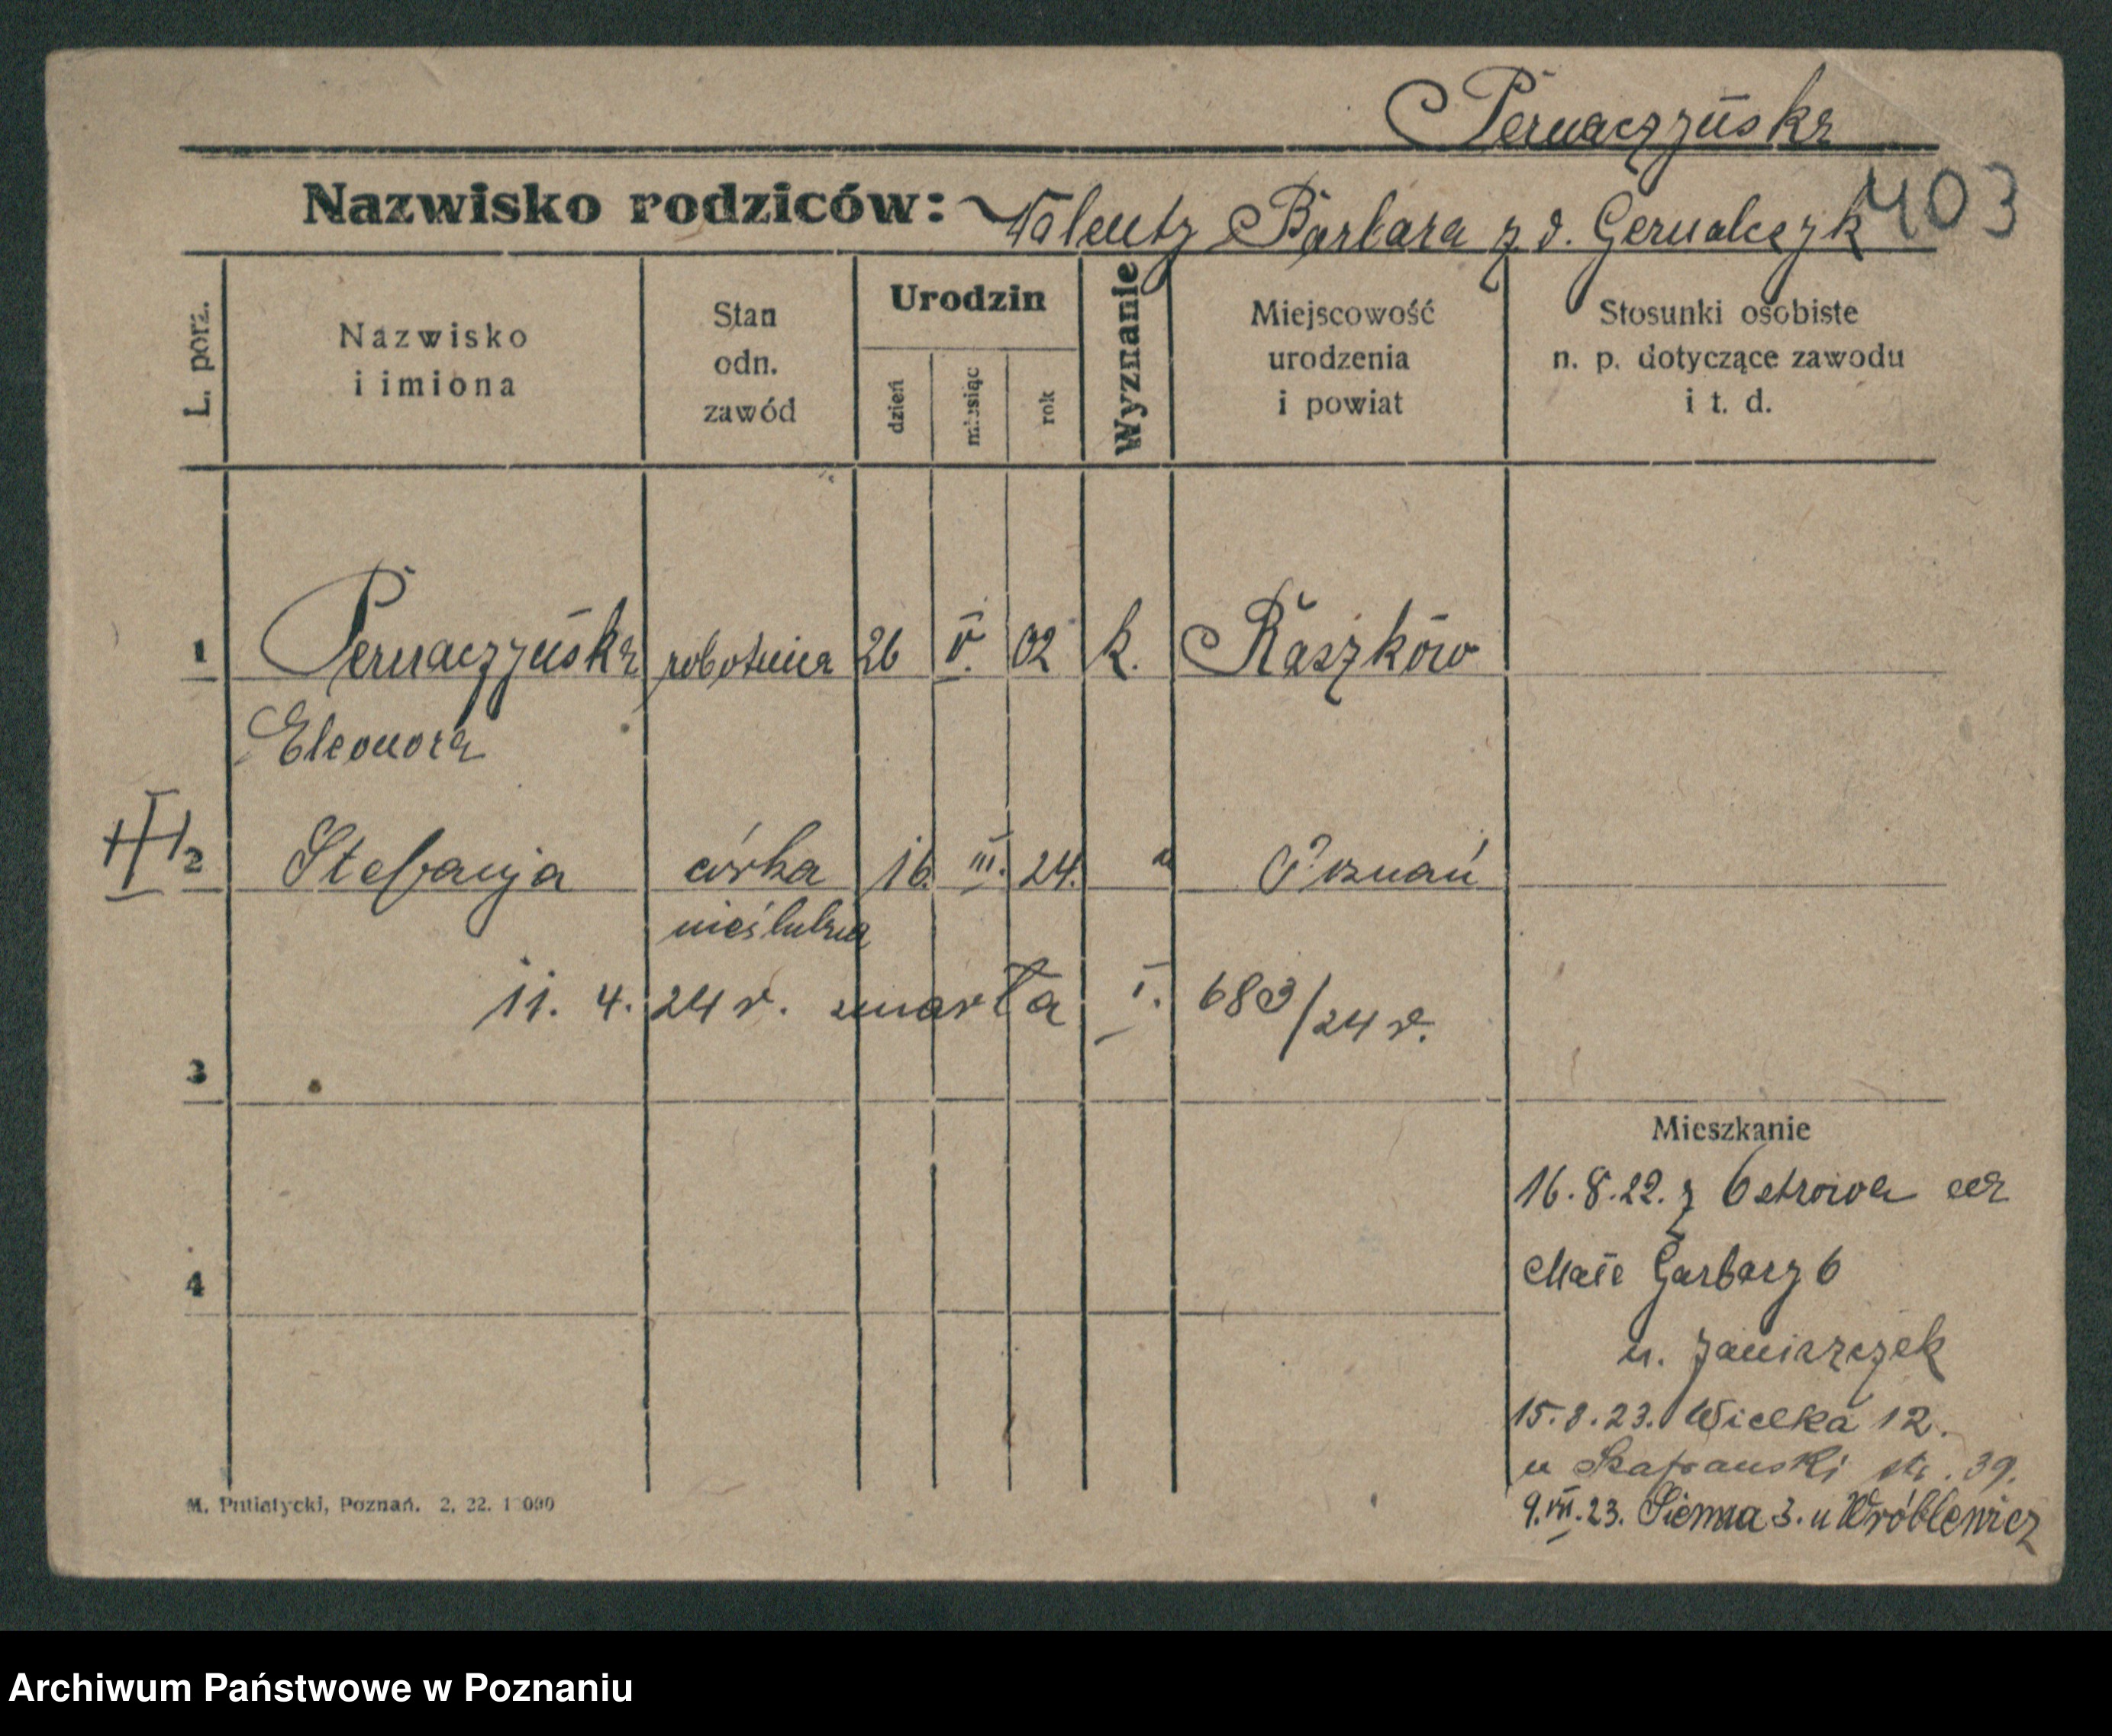 Pernaczyńska
403
Nazwisko rodziców: Walenty Barbara z d. Gernalczyk
L. porz.
Nazwisko
i imiona
Stan
odn.
zawód
Urodzin
dzień
miesiąc
rok
Wyznanie
Miejscowość
urodzenia
i powiat
Stosunki osobiste
n. p. dotyczące zawodu
i t. d.
1 Pernaczyńska robotnica 26 V. 02 k. Raszków
Eleonora
2 Stefanja córka 16. III. 24. " Poznań
nieślubna
11. 4. 24 r. zmarła I. 683/24 r.
3
Mieszkanie
16.8.22. z Ostrowa na
4
Małe Garbary 6
u. Janiszczek
15.8.23. Wielka 12.
u Szafranski str. 39.
9.VII.23. Sienna 3. u Wróblewicz
M. Putiatycki, Poznań. 2, 22. 1 000
Archiwum Państwowe w Poznaniu